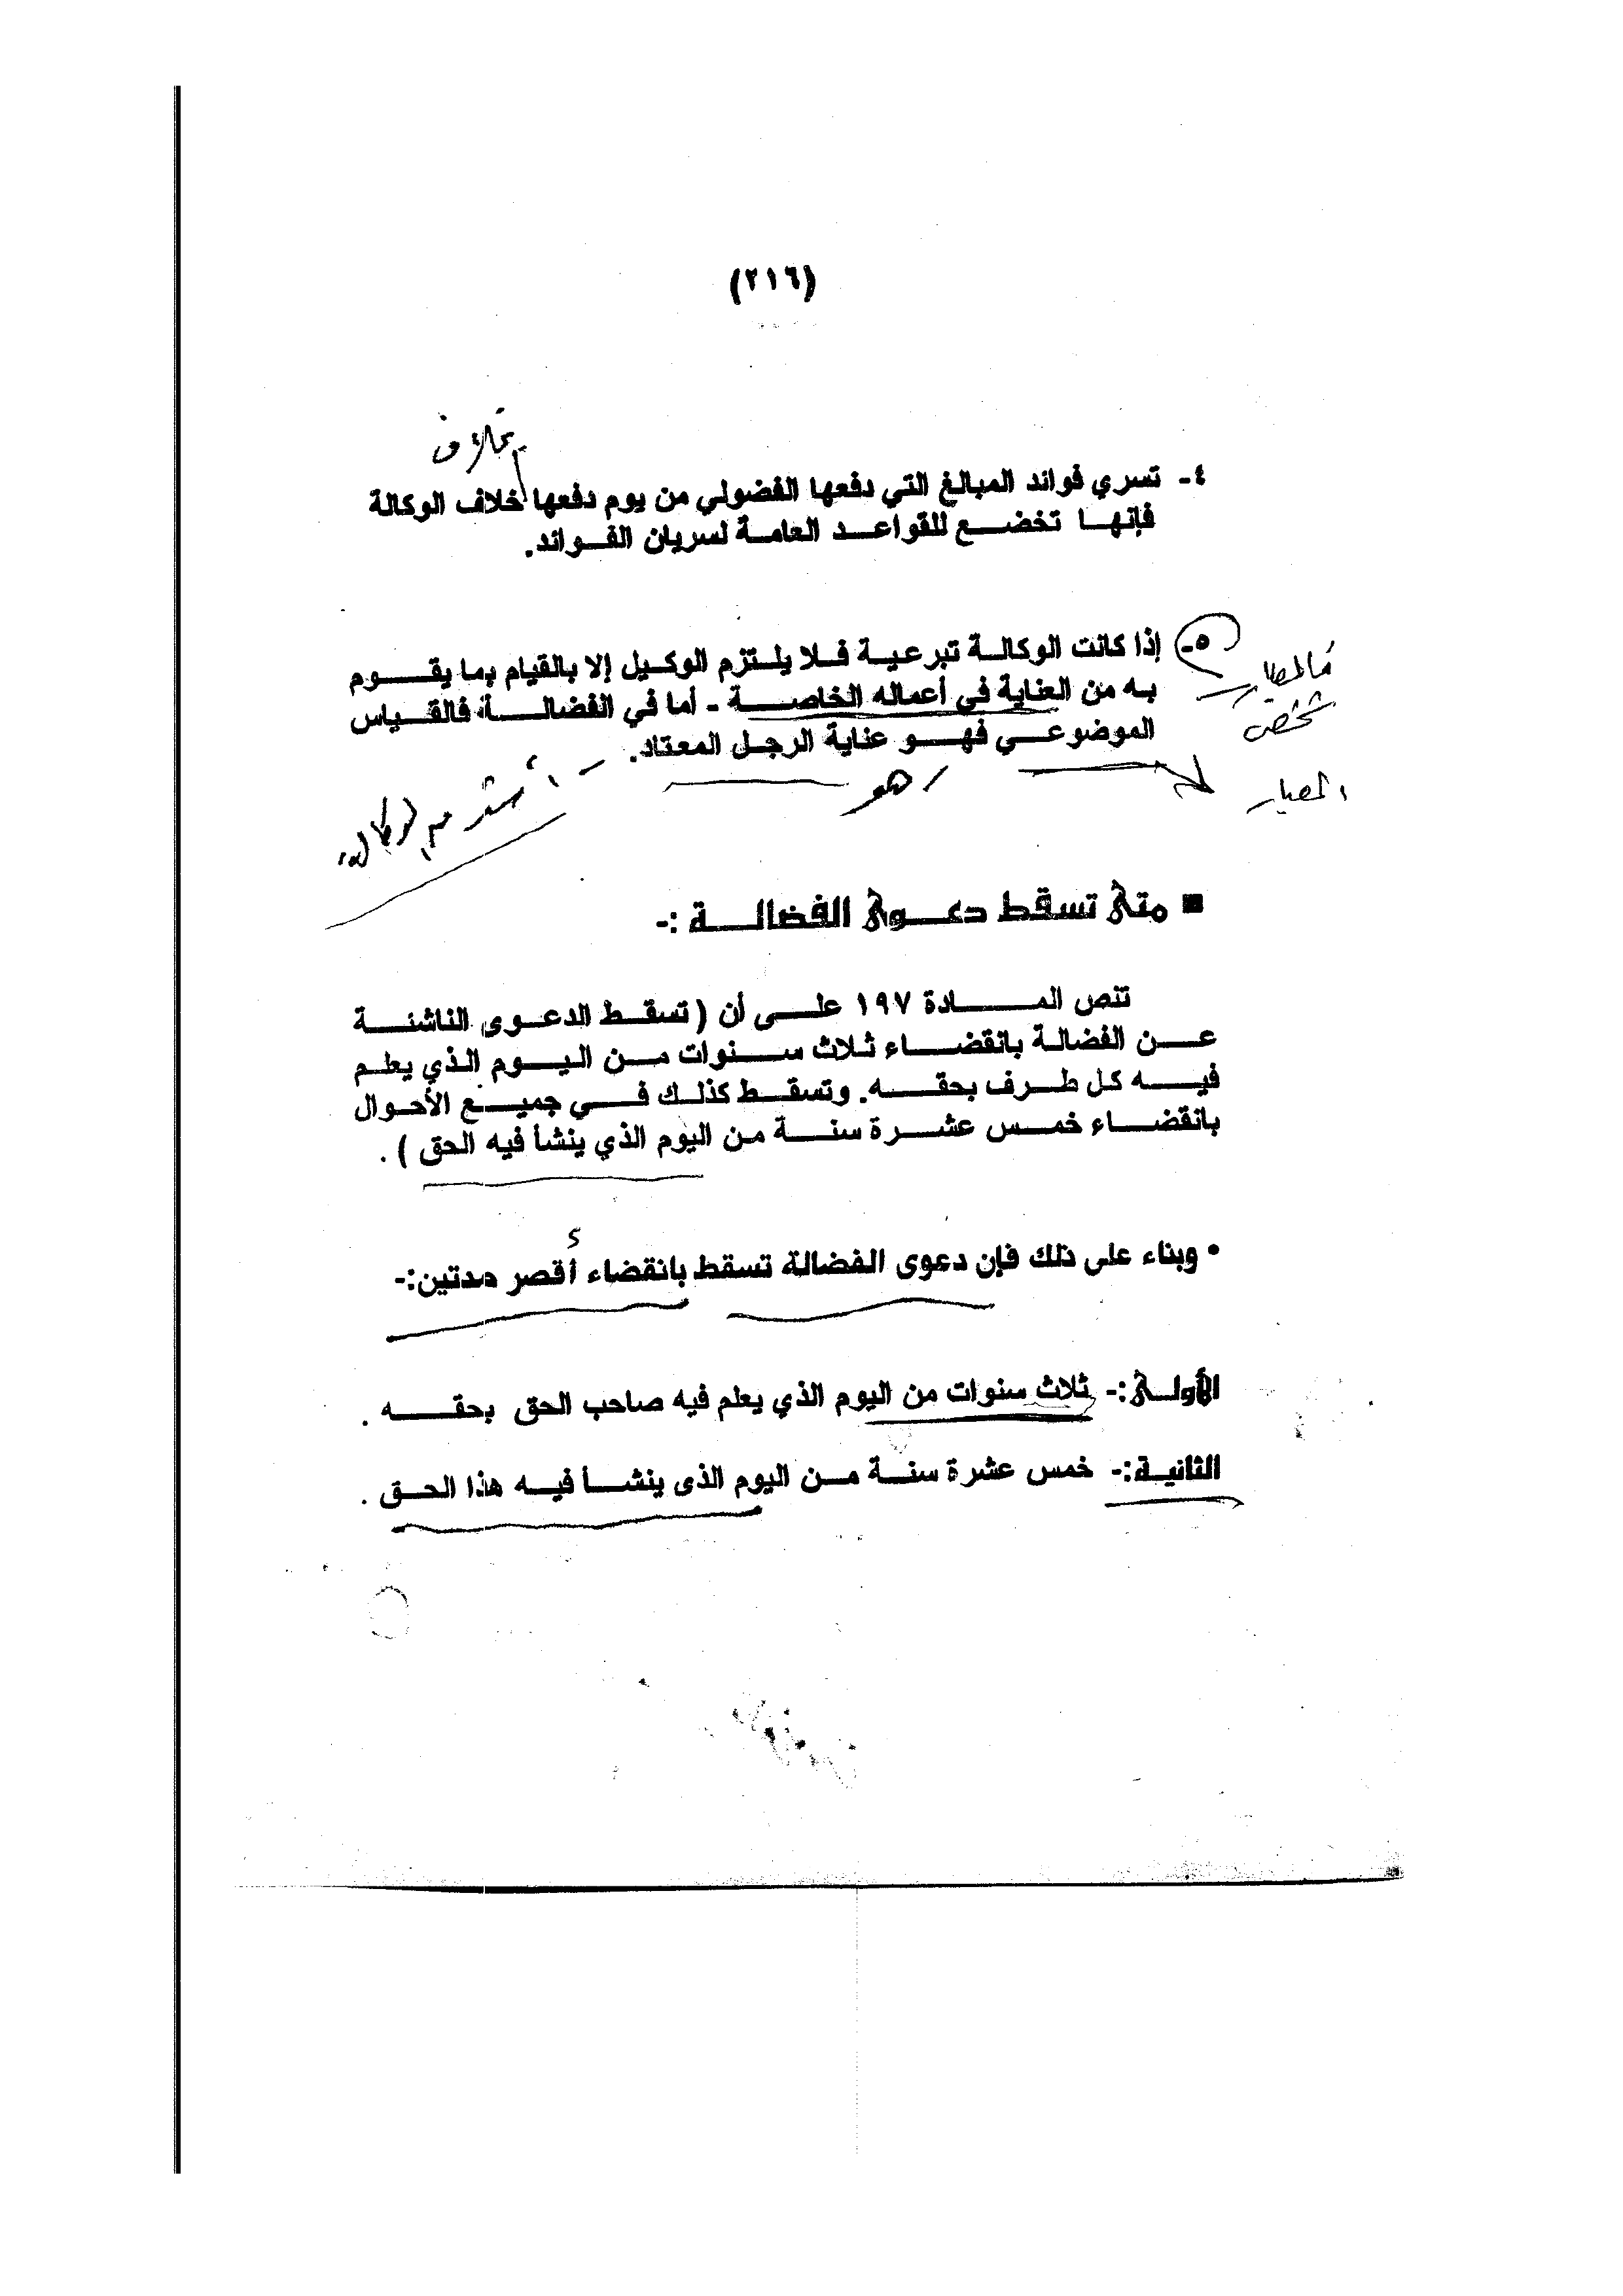 (٢١٦)
بخلاف
٤- تسري فوائد المبالغ التي دفعها الفضولي من يوم دفعها خلاف الوكالة
فإنها تخضع للقواعد العامة لسريان الفوائد.
٥- إذا كانت الوكالة تبرعية فلا يلتزم الوكيل إلا بالقيام بما يقوم
فالمعيار
به من العناية في أعماله الخاصة - أما في الفضالة فالقياس
شخصي
الموضوعي فهو عناية الرجل المعتاد.
المعيار
هو
- أشد من الوكالة
■ متى تسقط دعوى الفضالة :-
تنص المادة ١٩٧ على أن ( تسقط الدعوى الناشئة
عن الفضالة بانقضاء ثلاث سنوات من اليوم الذي يعلم
فيه كل طرف بحقه. وتسقط كذلك في جميع الأحوال
بانقضاء خمس عشرة سنة من اليوم الذي ينشأ فيه الحق ) .
• وبناء على ذلك فإن دعوى الفضالة تسقط بانقضاء أقصر مدتين:-
الأولى:- ثلاث سنوات من اليوم الذي يعلم فيه صاحب الحق بحقه .
الثانية:- خمس عشرة سنة من اليوم الذى ينشأ فيه هذا الحق .